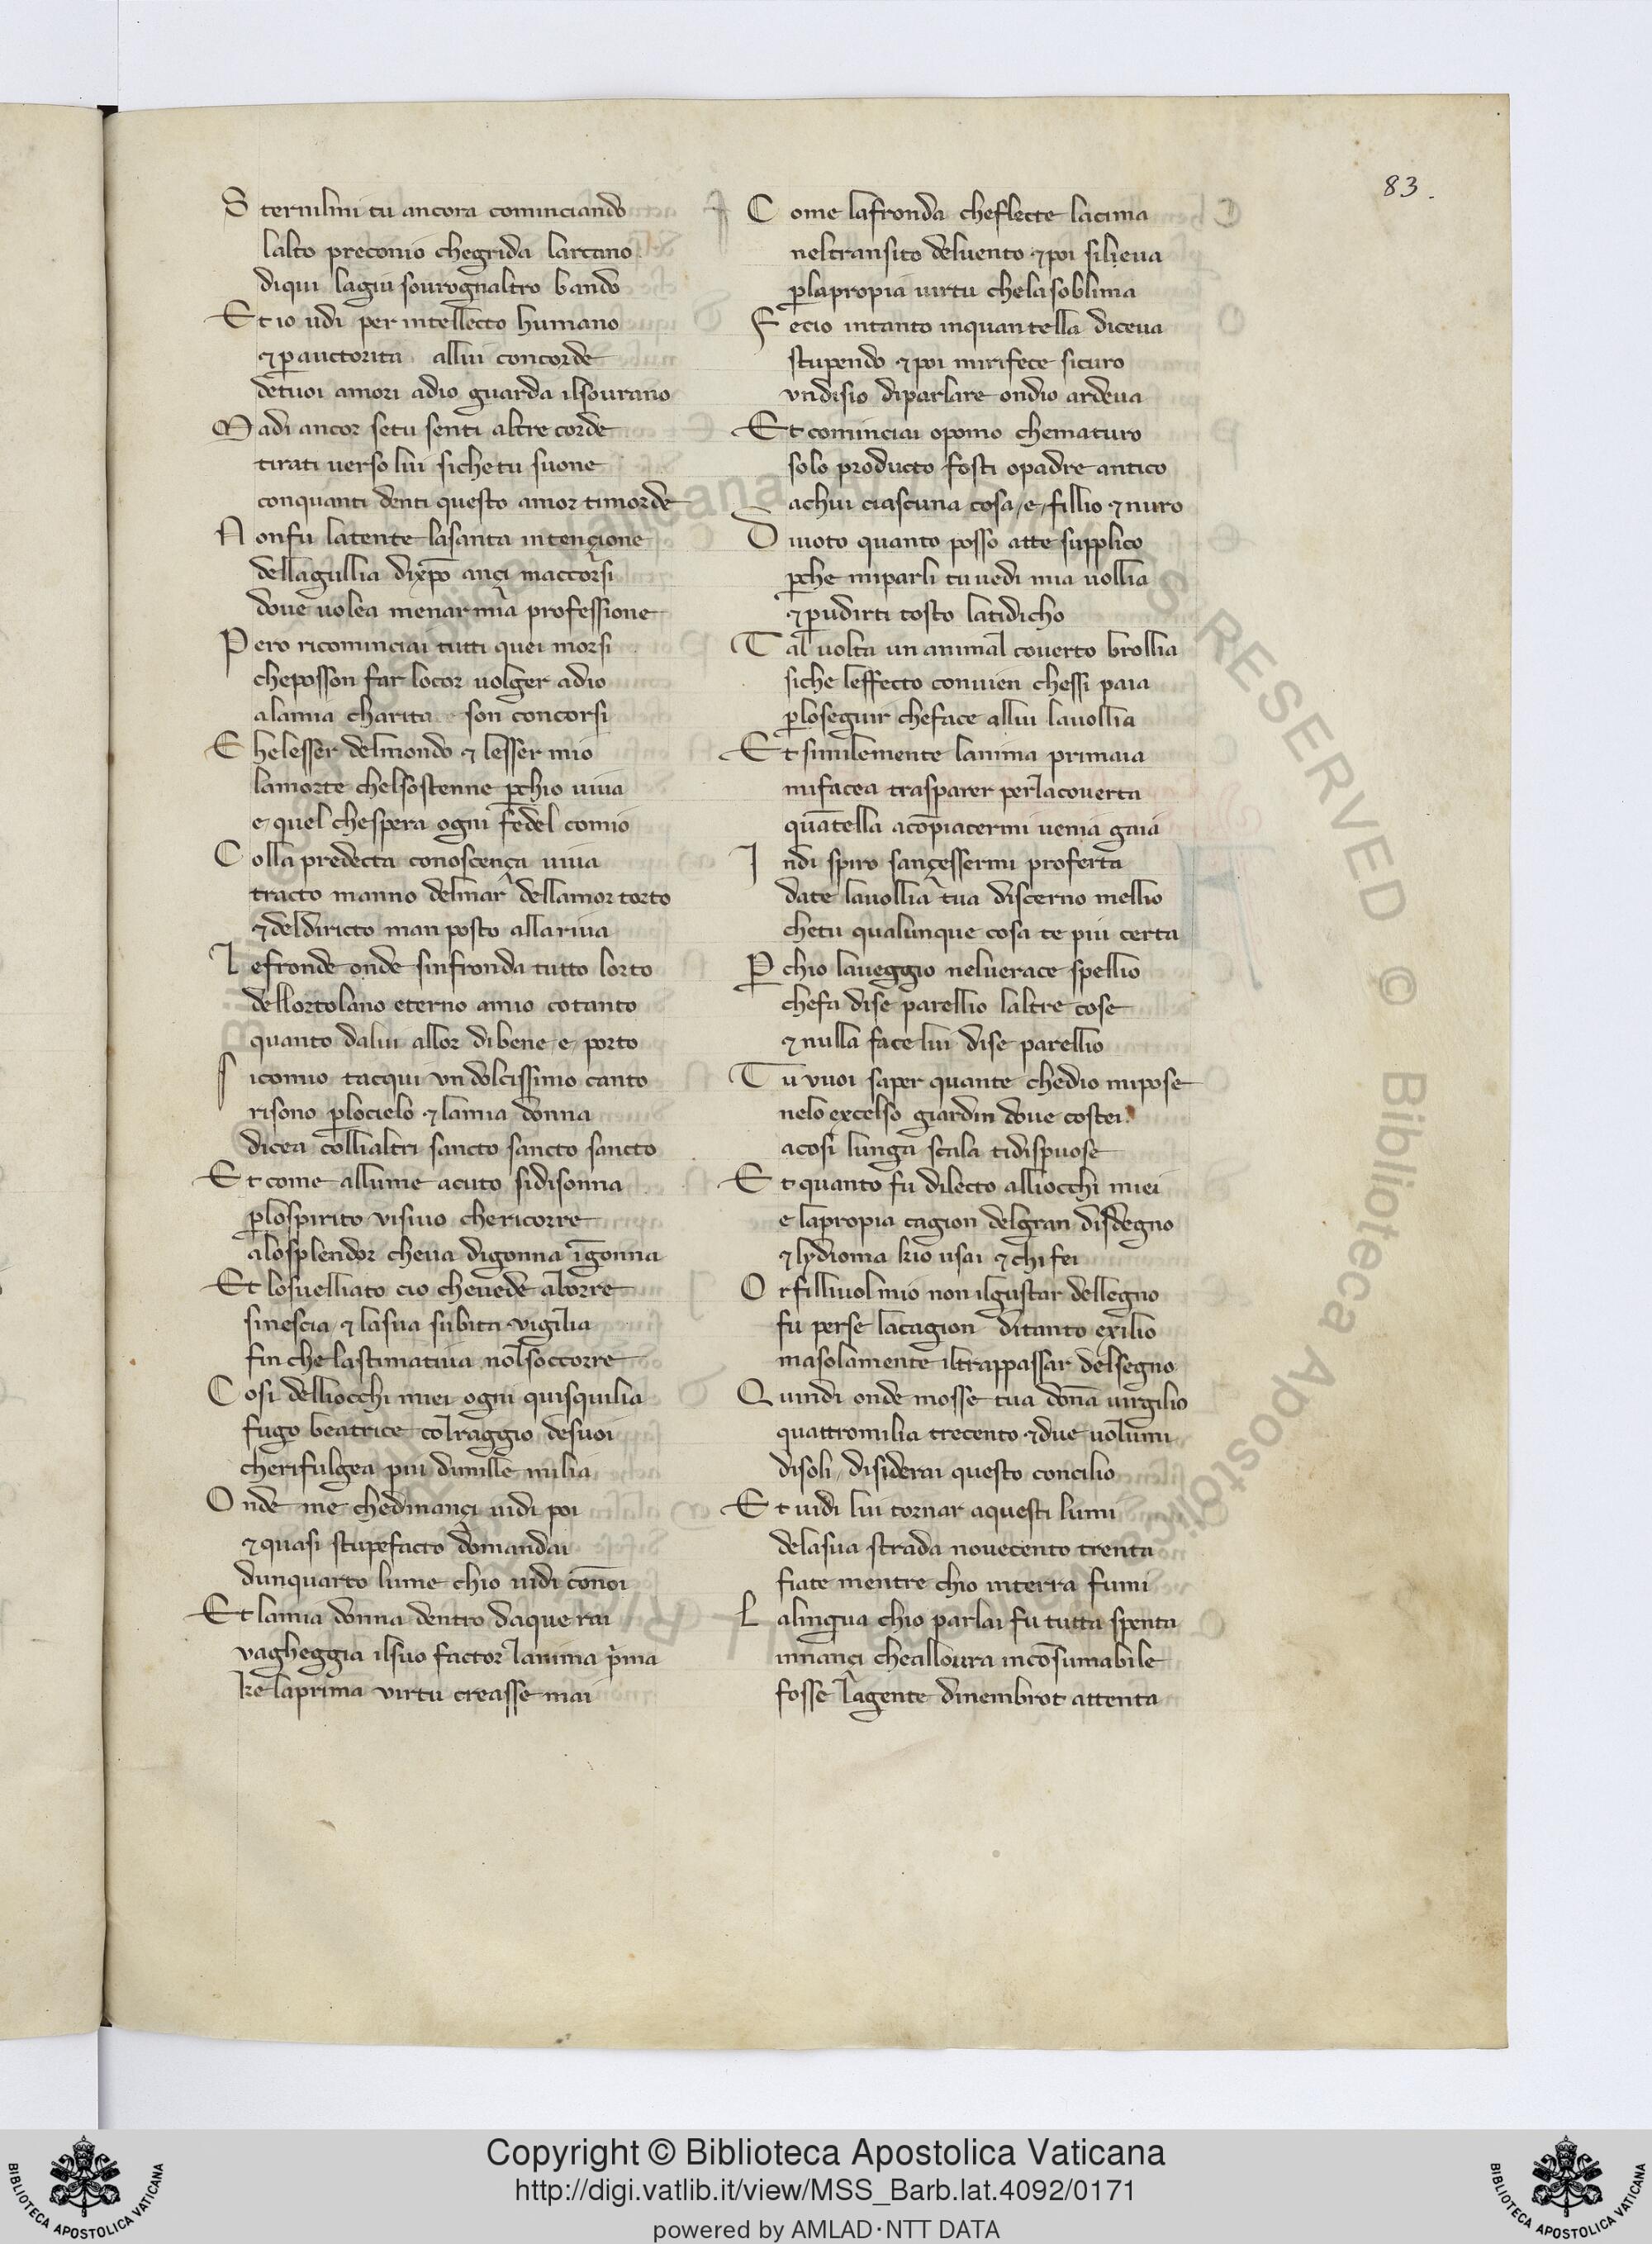 83.
S ternilmi tu ancora cominciando
lalto preconio chegrida larcano
diqui lagiu sourognaltro bando
Et io udi per intellecto humano
⁊ ꝑ auctorita allui concorde
detuoi amori adio guarda ilsourano
M adi ancor setu senti altre corde
tirati uerso lui sichetu suone
conquanti denti questo amor timorde
N onfu latente lasanta intençione
dellagullia dixp̄o ançi maccorsi
doue uolea menar mia professione
P ero ricominciai tutti quei morsi
cheposson far locor uolger adio
alamia charita son concorsi
C helesser delmondo ⁊ lesser mio
lamorte chelsostenne ꝑchio uiua
e quel chespera ogni fedel comio
C olla predecta conoscença uiua
tracto manno delmar dellamor torto
⁊ deldiricto man posto allariua
L efronde onde sinfronda tutto lorto
dellortolano eterno amo cotanto
quanto dalui allor di bene e porto
S icomio tacqui un dolcissimo canto
risono ꝑlocielo ⁊ lamia donna
dicea collialtri sancto sancto sancto
Et come allume acuto sidisonna
ꝑlospirito visiuo chericorre
alosplendor cheua digonna ī gonna
Et losuelliato cio cheuede aborre
sinescia ⁊ lasua subita vigilia
fin che lastimatiua nolsoccorre
C osi delliocchi miei ogni quisquilia
fugo beatrice colraggio desuoi
cherifulgea piu dimille milia
O nde me chedinançi uidi poi
⁊ quasi stupefacto domandai
dunquarto lume chio uidi cōnoi
Et lamia donna dentro daque rai
vagheggia ilsuo factor lanima pͥma
ke laprima virtu creasse mai
C ome lafronda cheflecte lacima
neltransito deluento ⁊ poi silieua
ꝑlapropia uirtu chelasoblima
F ecio intanto inquantella diceua
stupendo ⁊ poi mirifece sicuro
vndisio diparlare ondio ardeua
Et cominciai opomo chematuro
solo producto fosti opadre antico
achui ciascuna cosa e fillio ⁊ nuro
D iuoto quanto posso atte supplico
ꝑche miparli tu uedi mia uollia
⁊ ꝑudirti tosto latidicho
T al uolta un animal couerto brollia
siche leffecto conuien chessi paia
ꝑloseguir cheface allui lauollia
Et similemente lanima primaia
mifacea trasparer perlacouerta
quātella acōpiacermi uenia gaia
I ndi spiro sançessermi proferta
date lauollia tua discerno mellio
chetu qualunque cosa te piu certa
Ꝑ chio laueggio neluerace spellio
chefa dise parellio laltre cose
⁊ nulla face lui dise parellio
T u vuoi saper quante chedio mipose
nelo excelso giardin doue costei
acosi lunga scala tidispuose
Et quanto fu dilecto alliocchi miei
e lapropia cagion delgran disdegno
⁊ lydioma kio usai ⁊ chi fei
O r filliuol mio non ilgustar dellegno
fu perse lacagion ditanto exilio
masolamente iltrappassar delsegno
Q uindi onde mosse tua dōna uirgilio
quattromilia trecento ⁊ due uolumi
disoli disiderai questo concilio
Et uidi lui tornar aquesti lumi
delasua strada nouecento trenta
fiate mentre chio interra fumi
L alingua chio parlai fu tutta spenta
innançi chealloura incōsumabile
fosse lagente dinembrot attenta
Copyright © Biblioteca Apostolica Vaticana
http://digi.vatlib.it/view/MSS_Barb.lat.4092/0171
powered by AMLAD·NTT DATA
BIBLIOTECA APOSTOLICA VATICANA
BIBLIOTECA APOSTOLICA VATICANA